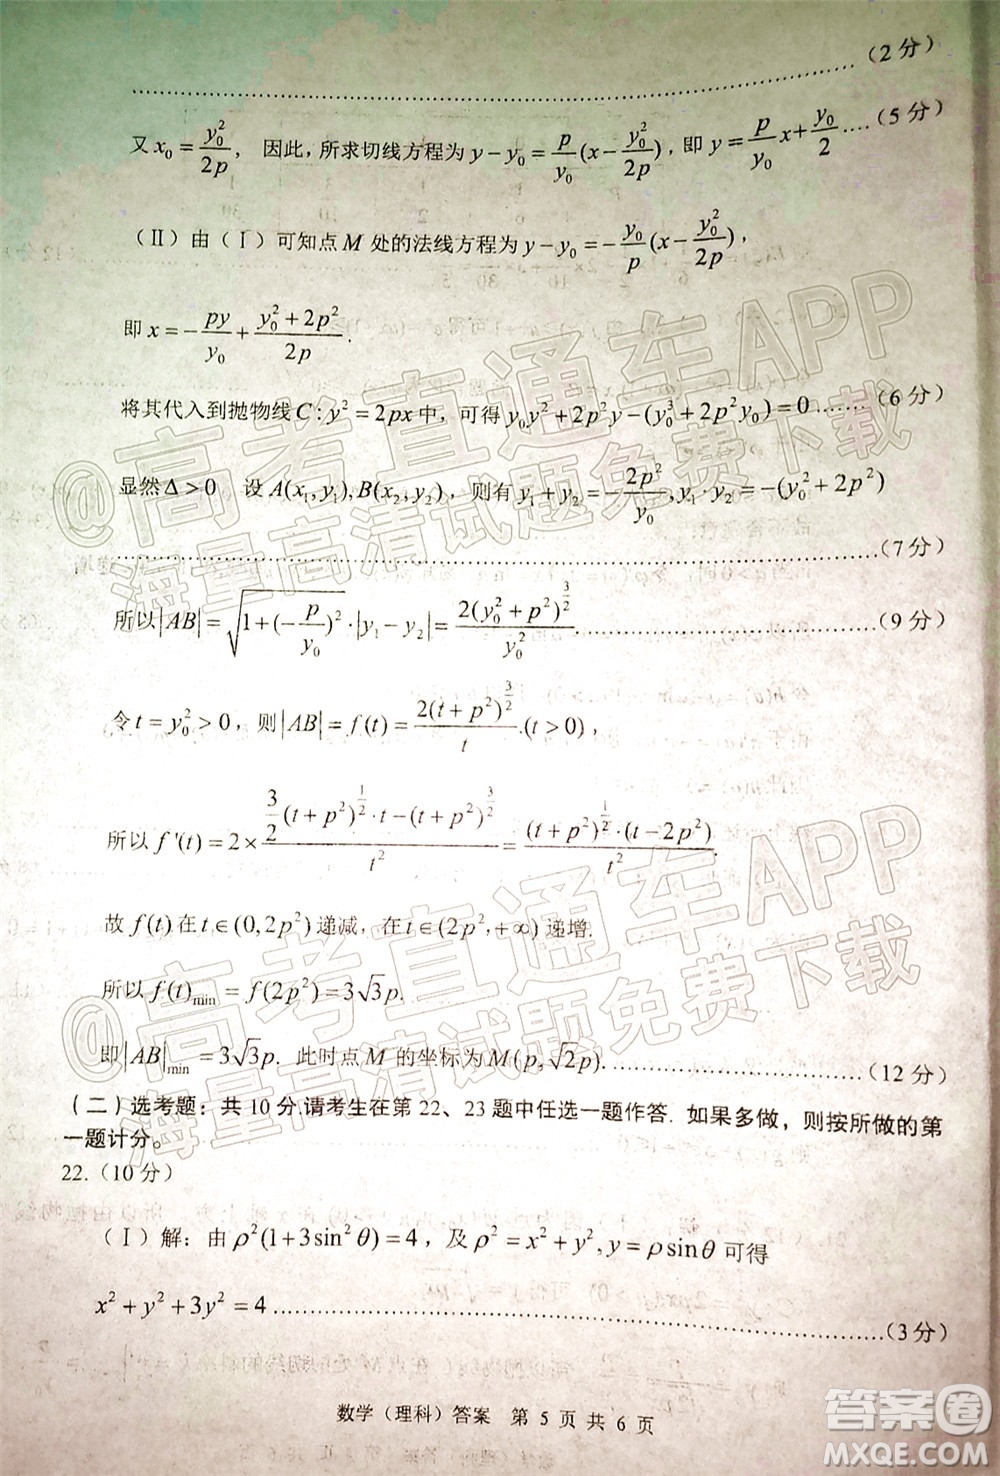 ……………………………………………………(2分)
又 x₀ = y₀²/2p, 因此,所求切线方程为 y−y₀ = p/y₀(x − y₀²/2p), 即 y = p/y₀ x + y₀/2 ….(5分)
(Ⅱ)由(Ⅰ)可知点 M 处的法线方程为 y−y₀ = −y₀/p(x − y₀²/2p),
即 x = −py/y₀ + (y₀²+2p²)/2p.
将其代入到抛物线 C: y² = 2px 中,可得 y₀y²+2p²y−(y₀³+2p²y₀)=0 ……(6分)
显然 Δ>0 设 A(x₁,y₁), B(x₂,y₂), 则有 y₁+y₂ = −2p²/y₀, y₁·y₂ = −(y₀²+2p²)
……………………………………………………(7分)
所以 |AB| = √(1+(−p/y₀)²)·|y₁−y₂| = 2(y₀²+p²)^(3/2)/y₀² ……………………(9分)
令 t = y₀² > 0, 则 |AB| = f(t) = 2(t+p²)^(3/2)/t.(t>0),
所以 f'(t) = 2×(3/2(t+p²)^(1/2)·t−(t+p²)^(3/2))/t² = (t+p²)^(1/2)·(t−2p²)/t².
故 f(t) 在 t∈(0,2p²) 递减, 在 t∈(2p²,+∞) 递增.
所以 f(t)min = f(2p²) = 3√3p.
即 |AB|min = 3√3p. 此时点 M 的坐标为 M(p,√2p). ……………………(12分)
(二)选考题:共 10 分.请考生在第 22、23 题中任选一题作答. 如果多做,则按所做的第
一题计分。
22.(10分)
(Ⅰ)解:由 ρ²(1+3sin²θ)=4, 及 ρ²=x²+y², y=ρsinθ 可得
x²+y²+3y²=4 ……………………………………(3分)
数学(理科)答案 第 5 页 共 6 页
@高考直通车APP
海量高清试题免费下载
@高考直通车APP
海量高清试题免费下载
答案圈
MXQE.COM